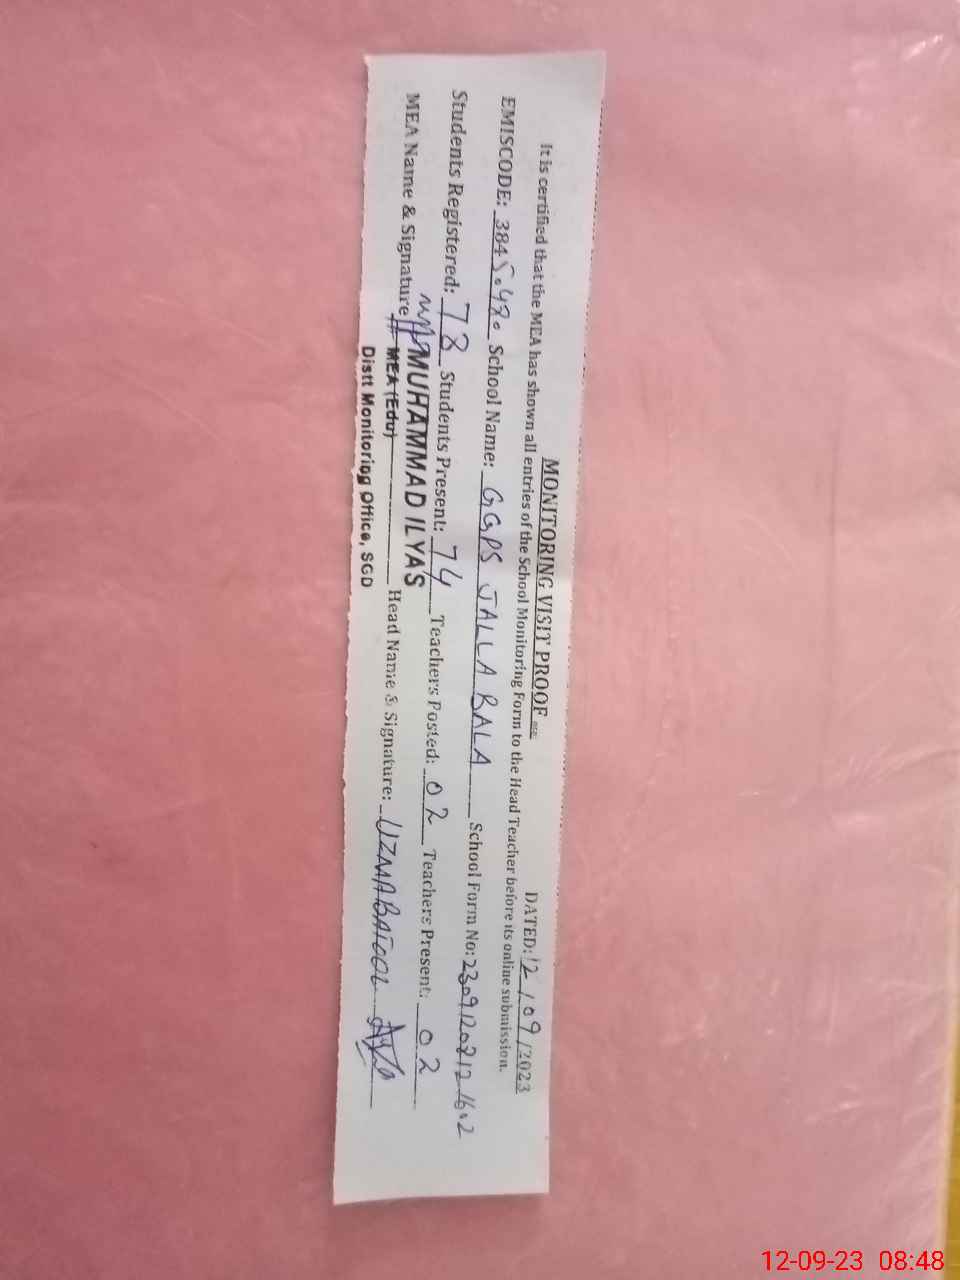 MONITORING VISIT PROOF DATED: 12/09/2023
It is certified that the MEA has shown all entries of the School Monitoring Form to the Head Teacher before its online submission.
EMISCODE: 38450480 School Name: GGPS JALLA BALA School Form No: 2309120812
Students Registered: 78 Students Present: 74 Teachers Posted: 02 Teachers Present: 02
MEA Name & Signature MUHAMMAD ILYAS Head Name & Signature: UZMA BATOOL
MEA (Edu)
Distt Monitoring Office, SGD
12-09-23 08:48